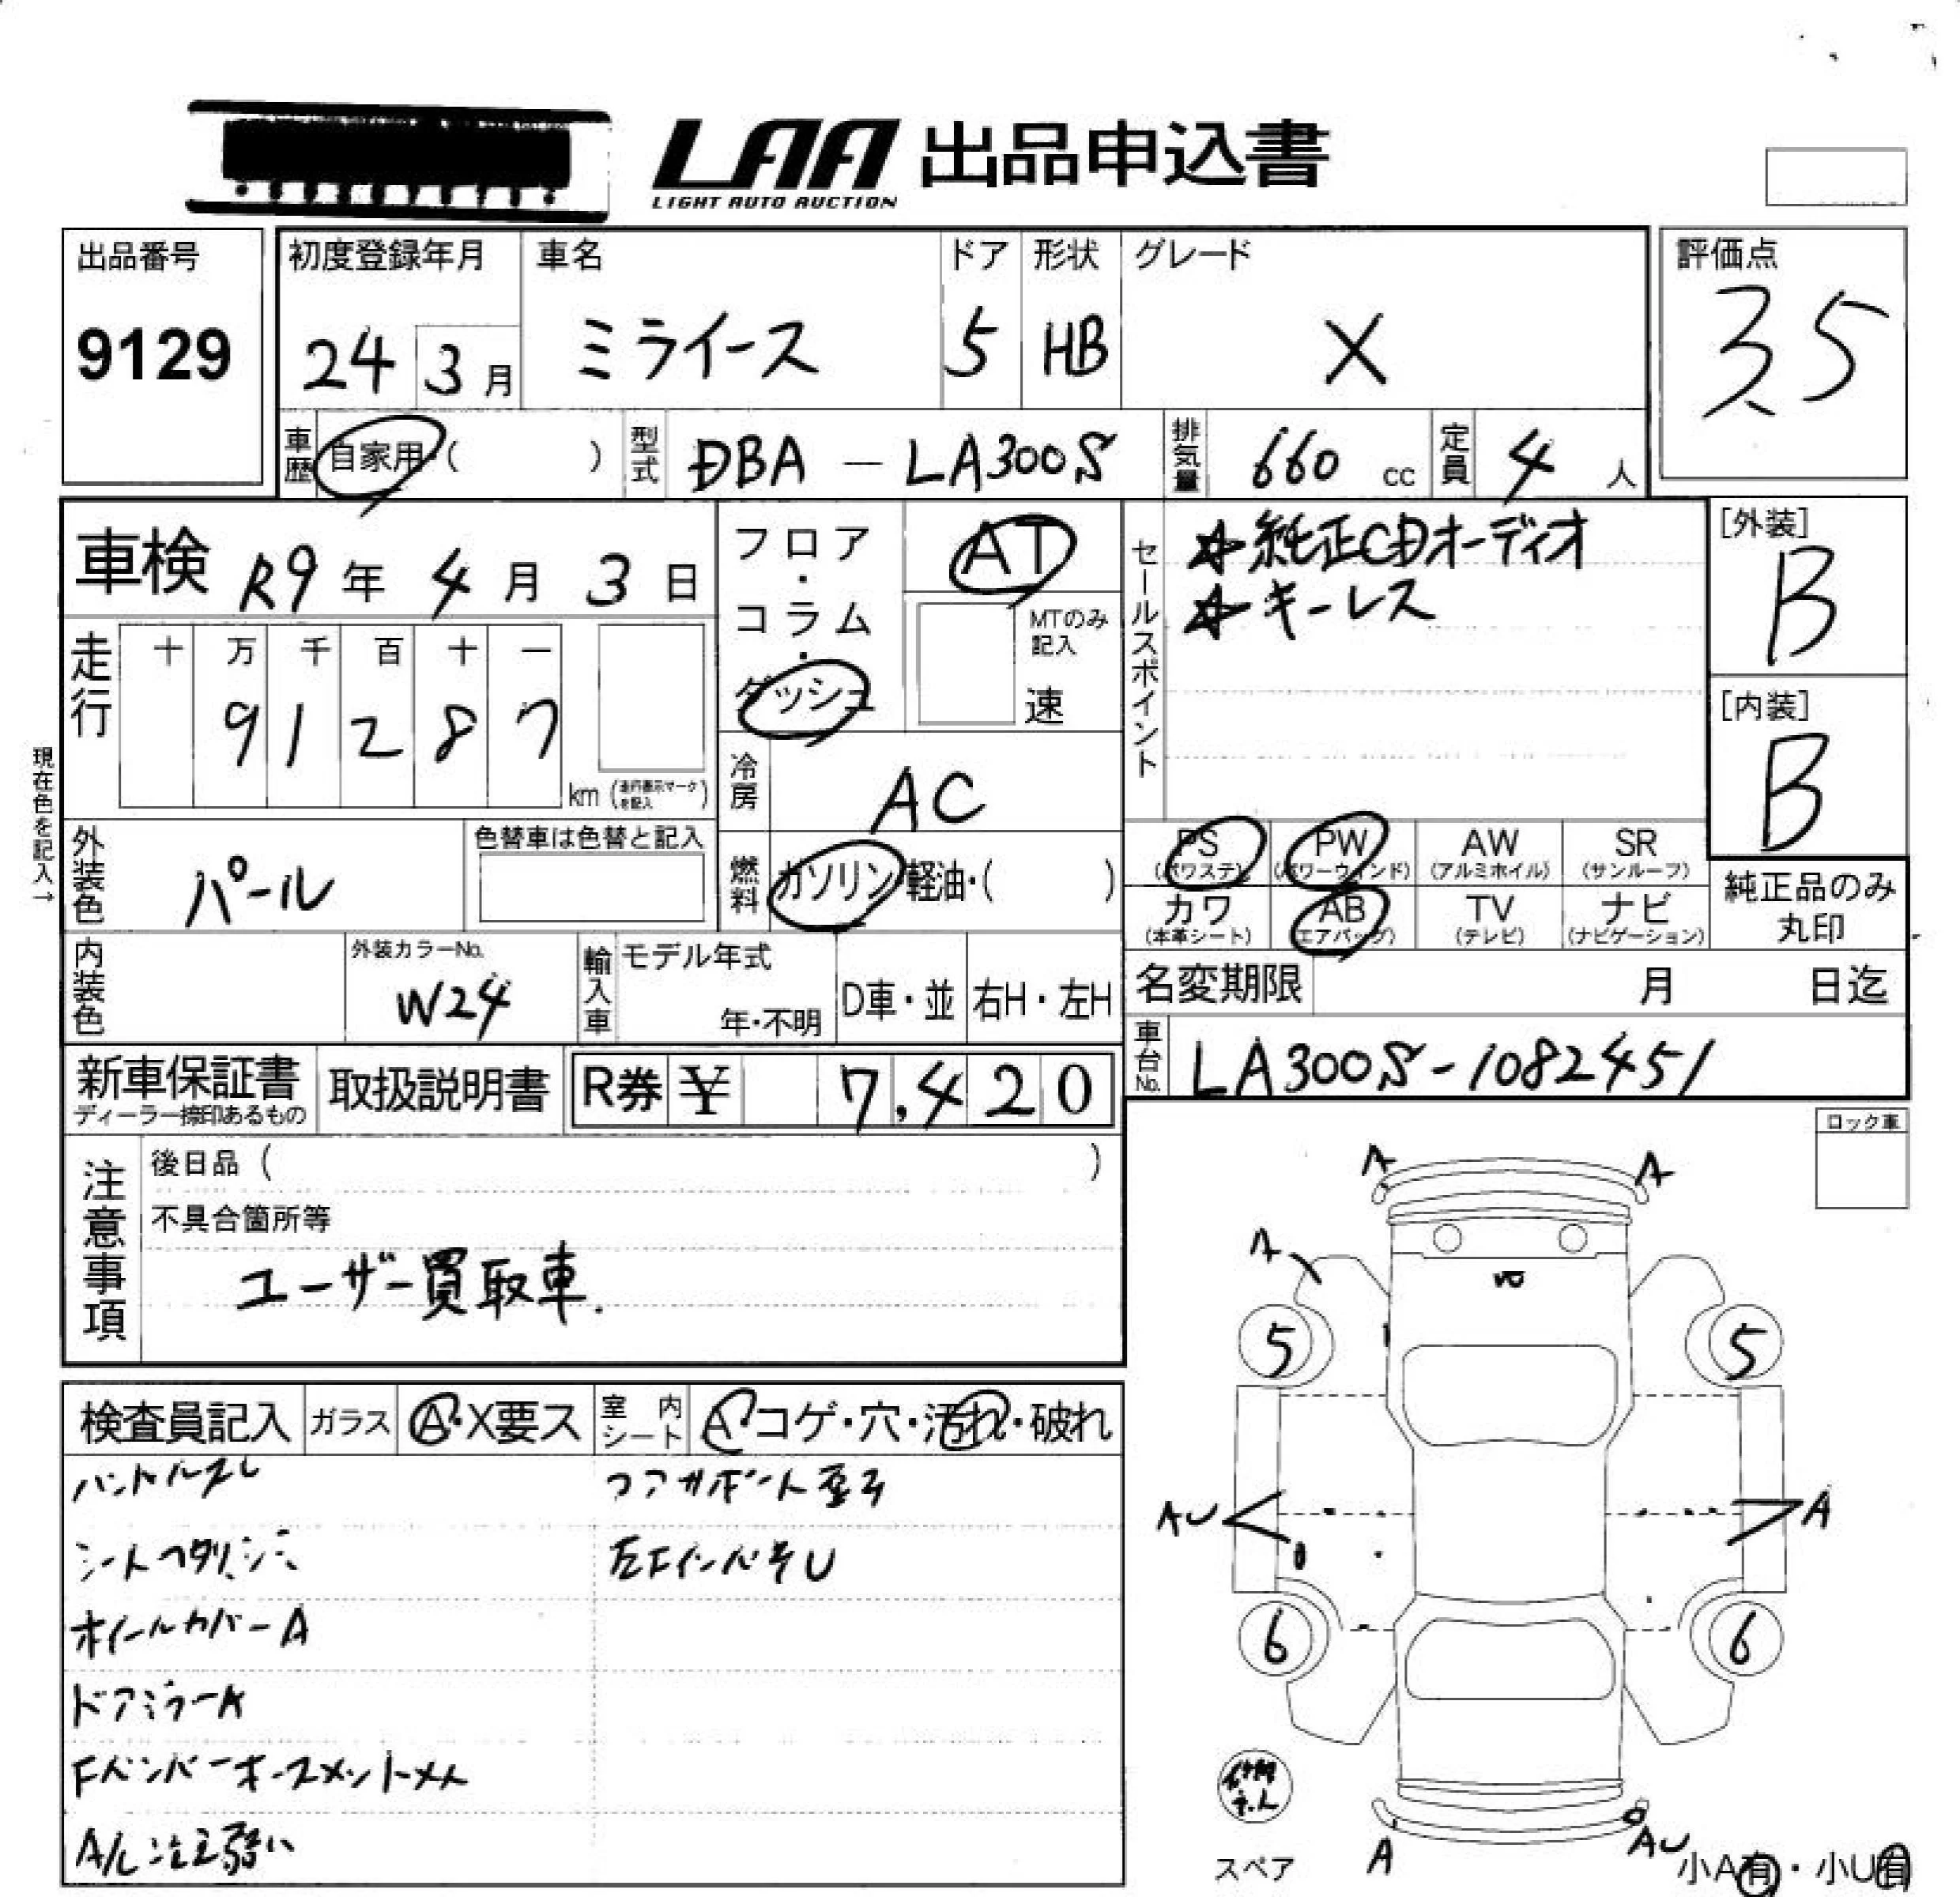 LAA 出品申込書
LIGHT AUTO AUCTION
出品番号
9129
初度登録年月
24 3月
車名
ミライース
ドア
5
形状
HB
グレード
X
評価点
3.5
車歴 自家用・( )
型式 DBA — LA300S
排気量 660 cc
定員 4 人
車検 R9年 4月 3日
走行 十 万 千 百 十 一
9 1 2 8 7
km (走行表示マークを記入)
現在色を記入→
外装色 パール
色替車は色替と記入
内装色
外装カラーNo.
W24
フロア・コラム・ダッシュ
AT
MTのみ記入
速
冷房 AC
燃料 ガソリン・軽油・( )
輸入車 モデル年式
年・不明
D車・並
右H・左H
セールスポイント
☆純正CDオーディオ
☆キーレス
[外装]
B
[内装]
B
PS (パワステ)
PW (パワーウインド)
AW (アルミホイル)
SR (サンルーフ)
カワ (本革シート)
AB (エアバッグ)
TV (テレビ)
ナビ (ナビゲーション)
純正品のみ
丸印
名変期限 月 日迄
車台No. LA300S-1082451
新車保証書
ディーラー捺印あるもの
取扱説明書
R券 ¥ 7,420
注意事項
後日品 ( )
不具合箇所等
ユーザー買取車.
ロック車
検査員記入
ガラス A・X要ス
室内シート A・コゲ・穴・汚れ・破れ
ハンドルスレ
シートヘタリ、シミ
ホイールカバーA
ドアミラーA
A/C冷え弱い
A
A
A
5
5
AU
A
6
6
スペア
A
AU
小A有・小U有